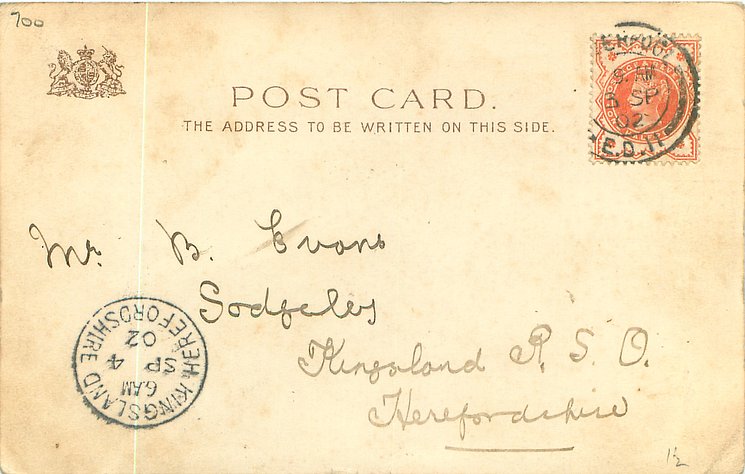 700
POST CARD.
THE ADDRESS TO BE WRITTEN ON THIS SIDE.
8 AM
SP
02
E.D.11
Mr. B. Evans
Sodgeley
Kingsland R. S. O.
Herefordshire
KINGSLAND HEREFORDSHIRE
6 AM
SP 4
02
1/2